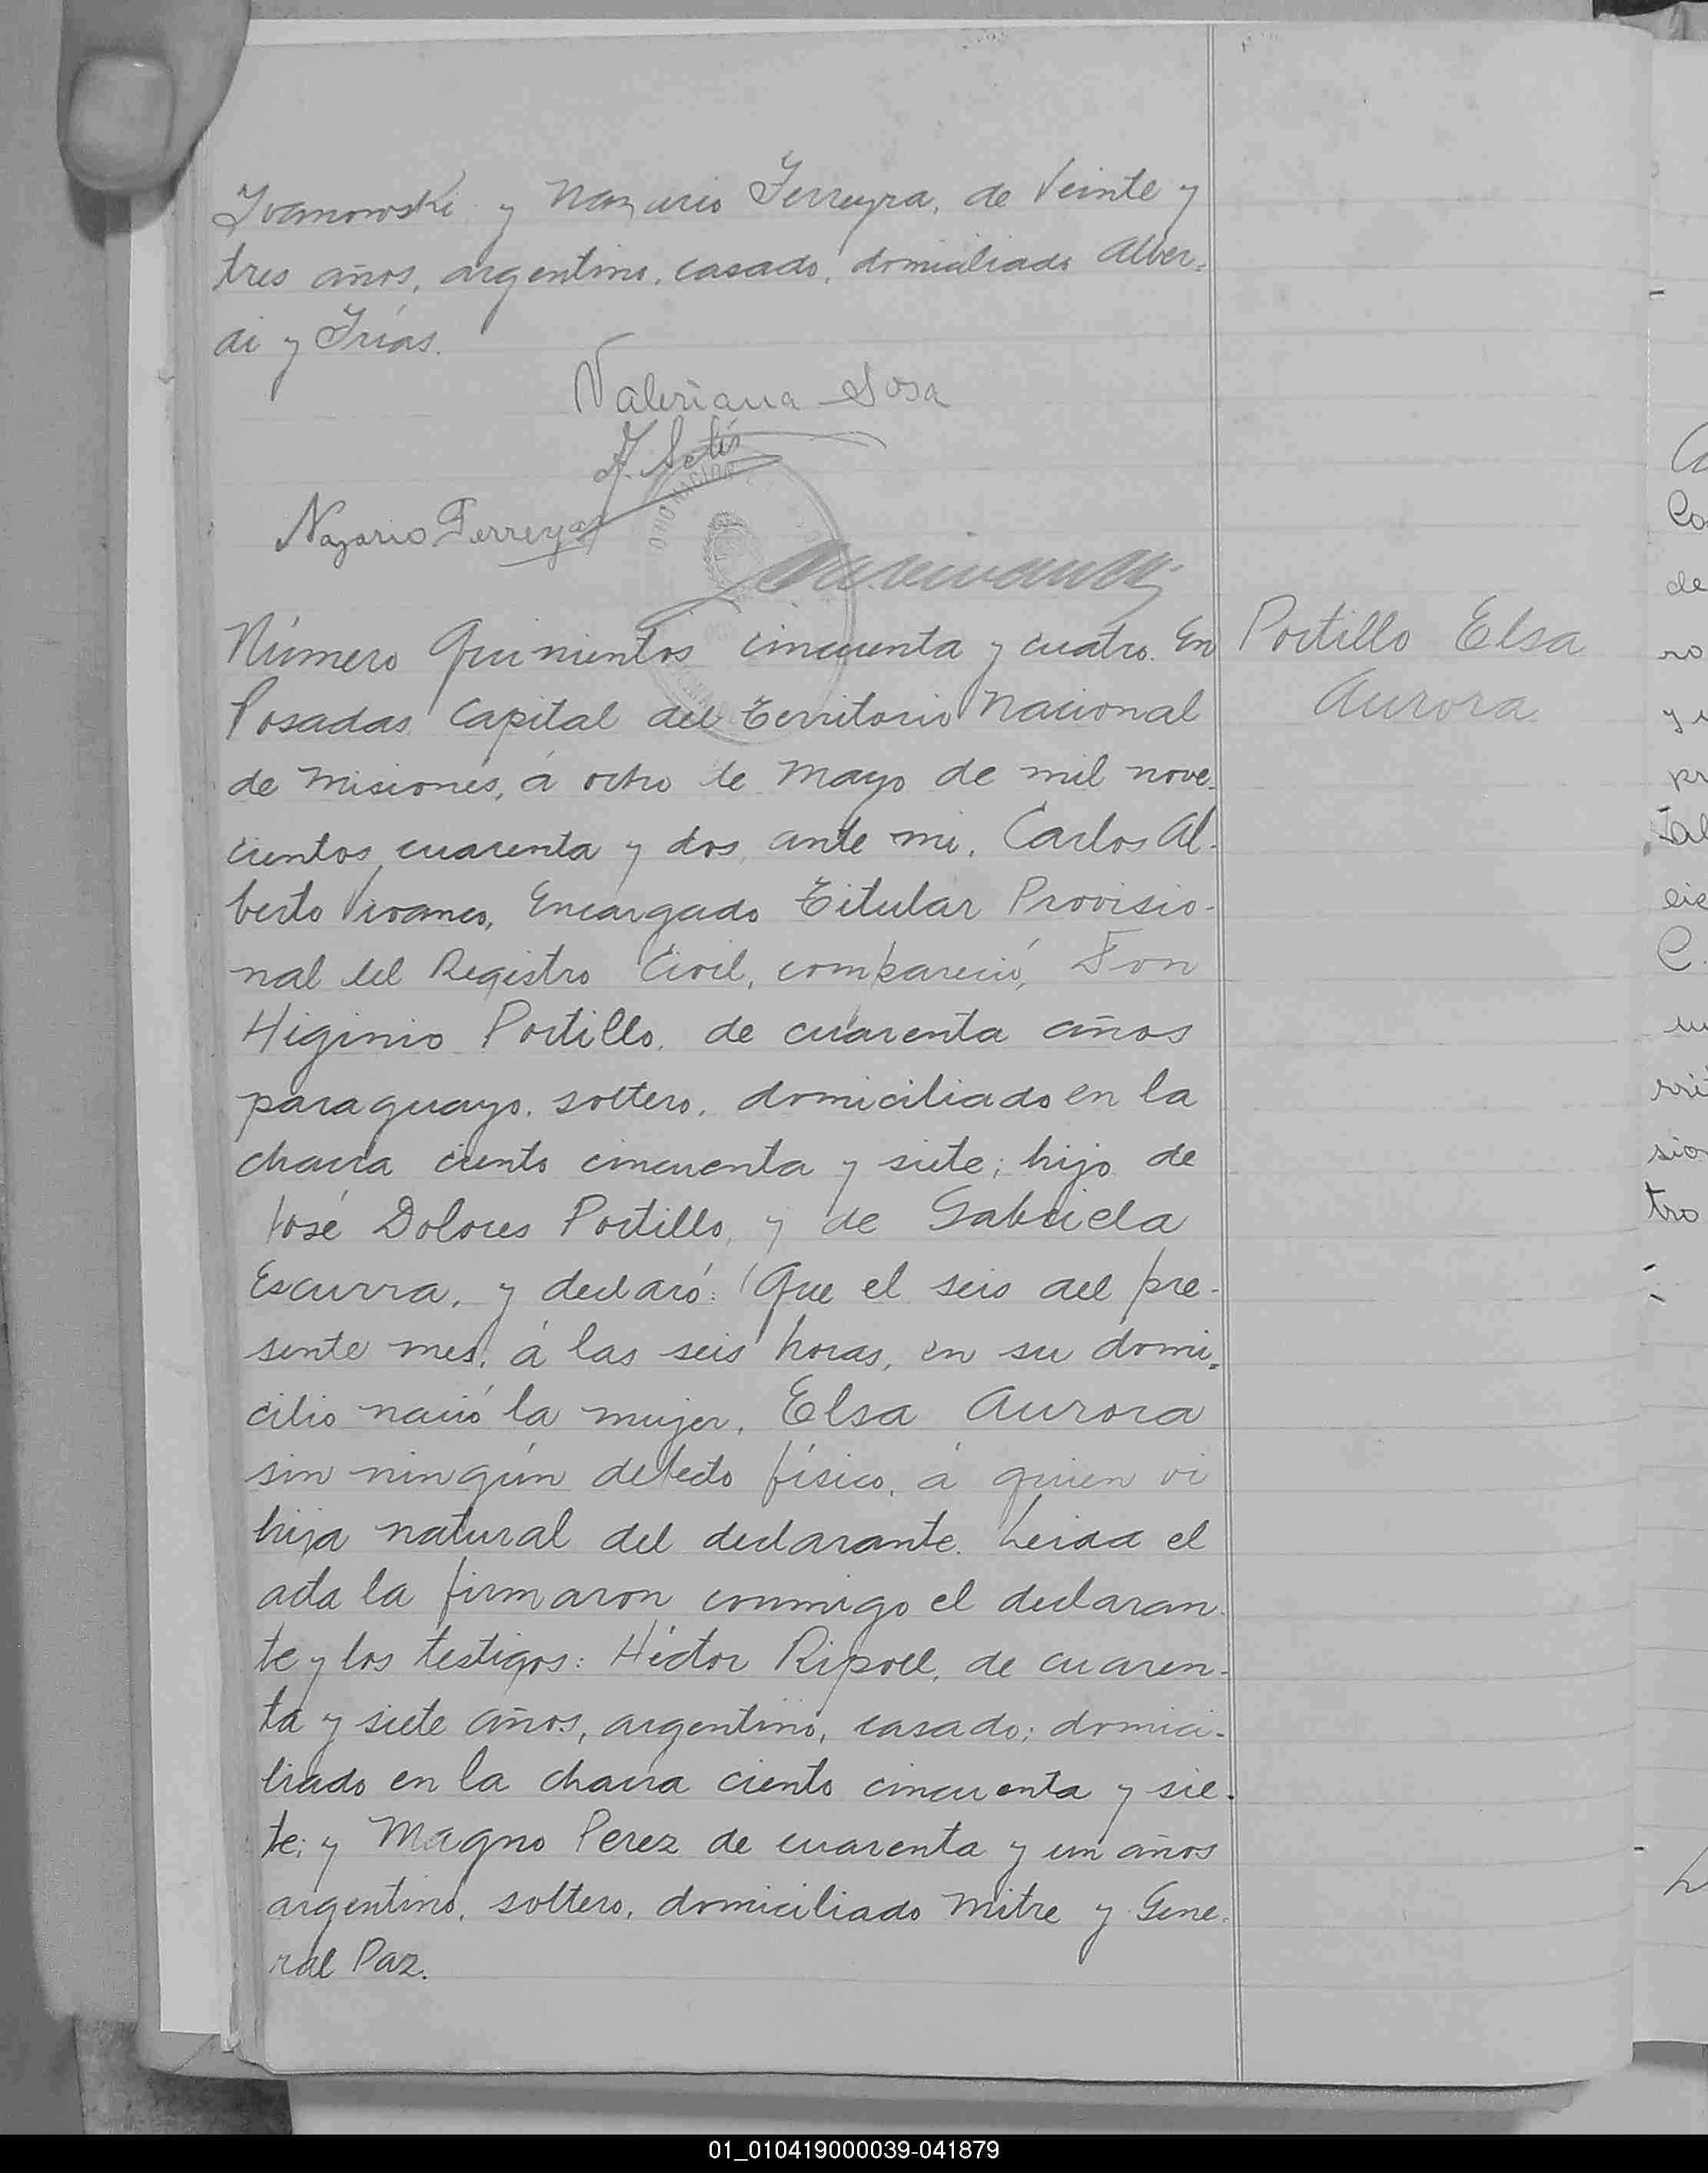 Ivanowski y Nazario Ferreyra, de Veinte y
tres años, argentino, casado, domiciliado Alber-
di y Frías.
Valeriana Sosa
Nazario Ferreyra
Número Quinientos cincuenta y cuatro. En
Posadas Capital del Territorio Nacional
de Misiones, á ocho de Mayo de mil nove-
cientos cuarenta y dos, ante mi, Carlos Al-
berto Vivanco, Encargado Titular Provisio-
nal del Registro Civil, compareció, Don
Higinio Portillo, de cuarenta años
paraguayo, soltero, domiciliado en la
chacra ciento cincuenta y siete; hijo de
José Dolores Portillo, y de Gabriela
Escurra, y declaró: Que el seis del pre-
sente mes, á las seis horas, en su domi-
cilio nació la mujer, Elsa Aurora
sin ningún defecto físico, á quien vi
hija natural del declarante. Leida el
acta la firmaron conmigo el declaran-
te y los testigos: Héctor Ripoll, de cuaren-
ta y siete años, argentino, casado; domici-
liado en la chacra ciento cincuenta y sie-
te; y Magno Perez de cuarenta y un años
argentino, soltero, domiciliado Mitre y Gene-
ral Paz.
Portillo Elsa
Aurora
01_010419000039-041879